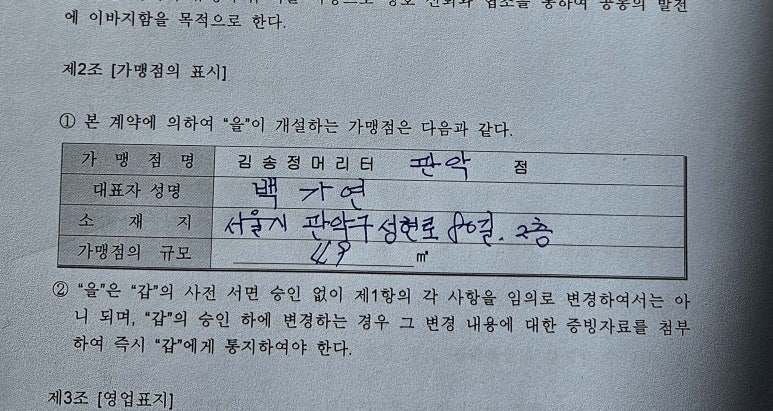 에 이바지함을 목적으로 한다.
제2조 [가맹점의 표시]
① 본 계약에 의하여 “을”이 개설하는 가맹점은 다음과 같다.
가 맹 점 명 김송정머리터 판악 점
대표자 성명 백가연
소 재 지 서울시 판악구 성현로 80길. 2층
가맹점의 규모 49 ㎡
② “을”은 “갑”의 사전 서면 승인 없이 제1항의 각 사항을 임의로 변경하여서는 아
니 되며, “갑”의 승인 하에 변경하는 경우 그 변경 내용에 대한 증빙자료를 첨부
하여 즉시 “갑”에게 통지하여야 한다.
제3조 [영업표지]